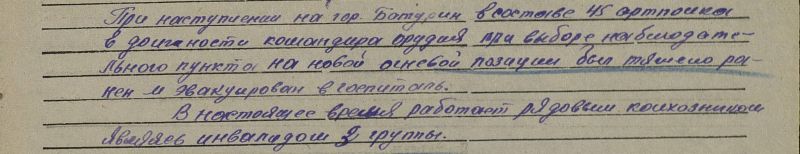 При наступлении на гор. Батурин в составе 45 артполка
в должности командира орудия при выборе наблюдате-
льного пункта на новой огневой позиции был тяжело ра-
нен и эвакуирован в госпиталь.
В настоящее время работает рядовым колхозником
являясь инвалидом 3 группы.